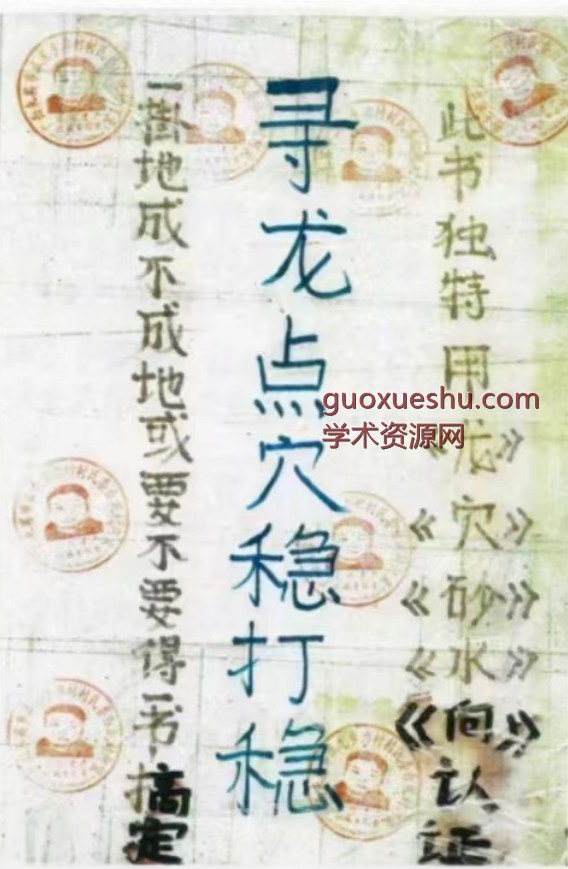 此书独特用《龙》《穴》《砂》《水》《向》认证
寻龙点穴稳打稳
一掛地成不成地或要不要得一书搞定
guoxueshu.com
学术资源网